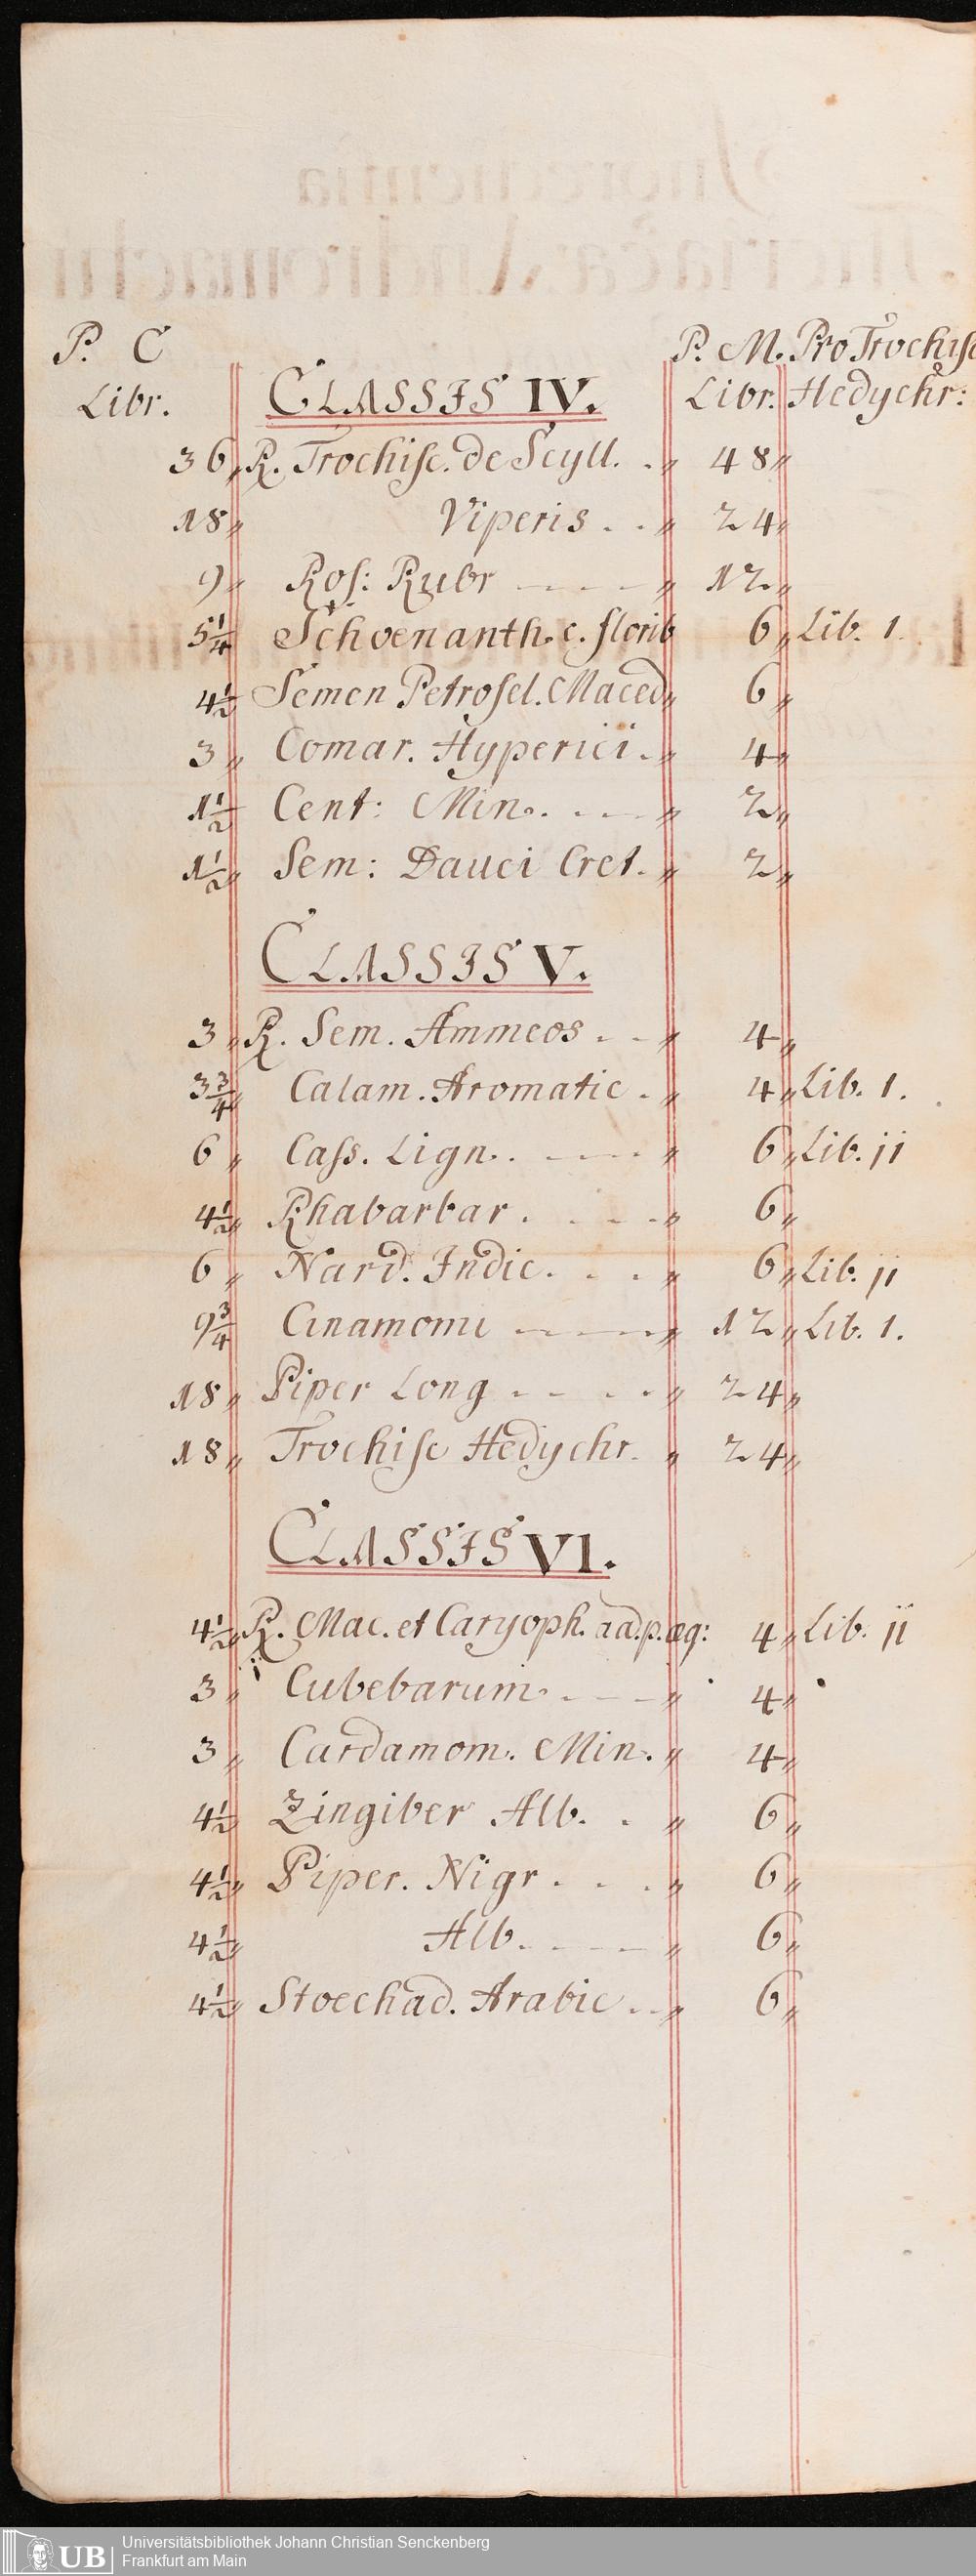 P. C P. M. Pro Trochisc
Libr. CLASSIS IV. Libr. Hedychr:
36 R. Trochisc. de Scyll. . 48
18 Viperis . . 24
9 Ros: Rubr 12
5 1/4 Schoenanth. c. florib 6 Lib. 1.
4 1/2 Semen Petrosel. Maced 6
3 Comar. Hyperici . 4
1 1/2 Cent: Min. . 2
1 1/2 Sem: Dauci Cret. 2
CLASSIS V.
3 R. Sem. Ammeos . 4
3 3/4 Calam. Aromatic . 4 Lib. 1.
6 Cass. Lign. . 6 Lib. ij
4 1/2 Rhabarbar . 6
6 Nard. Indic. . . . 6 Lib. ij
9 3/4 Cinamomi 12 Lib. 1.
18 Piper Long . . . . 24
18 Trochisc Hedychr. 24
CLASSIS VI.
4 1/2 R. Mac. et Caryoph. aa. p. æq: 4 Lib. ij
3 Cubebarum . 4
3 Cardamom. Min. 4
4 1/2 Zingiber Alb. . 6
4 1/2 Piper. Nigr . . . 6
4 1/2 Alb. . 6
4 1/2 Stoechad. Arabic . . 6
UB Universitätsbibliothek Johann Christian Senckenberg
Frankfurt am Main